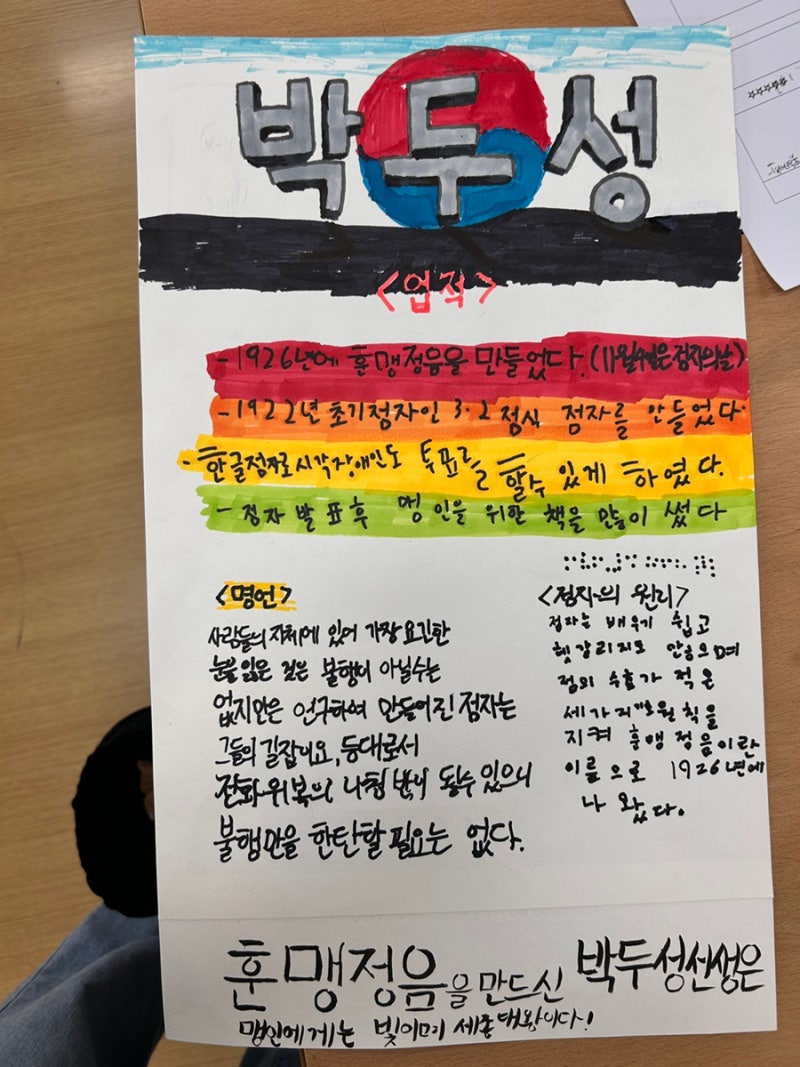 박두성
<업적>
-1926년에 훈맹정음을 만들었다.(11월4일은점자의날)
-1922년 초기점자인 3·2 점식 점자를 만들었다.
-한글점자로 시각장애인도 투표를 할수 있게 하였다.
-점자 발표후 맹인을 위한 책을 많이 썼다
<명언>
사람들의 지체에 있어 가장 요긴한
눈을 잃은 것은 불행이 아닐수는
없지만은 연구하여 만들어진 점자는
그들의 길잡이요, 등대로서
전화위복의 나침반이 될수 있으니
불행만을 한탄할 필요는 없다.
<점자의 원리>
점자는 배우기 쉽고
헷갈리지도 않으며
점의 수효가 적은
세가지 원칙을
지켜 훈맹정음이란
이름으로 1926년에
나왔다.
훈맹정음을 만드신 박두성선생은
맹인에게는 빛이며 세종대왕이다!